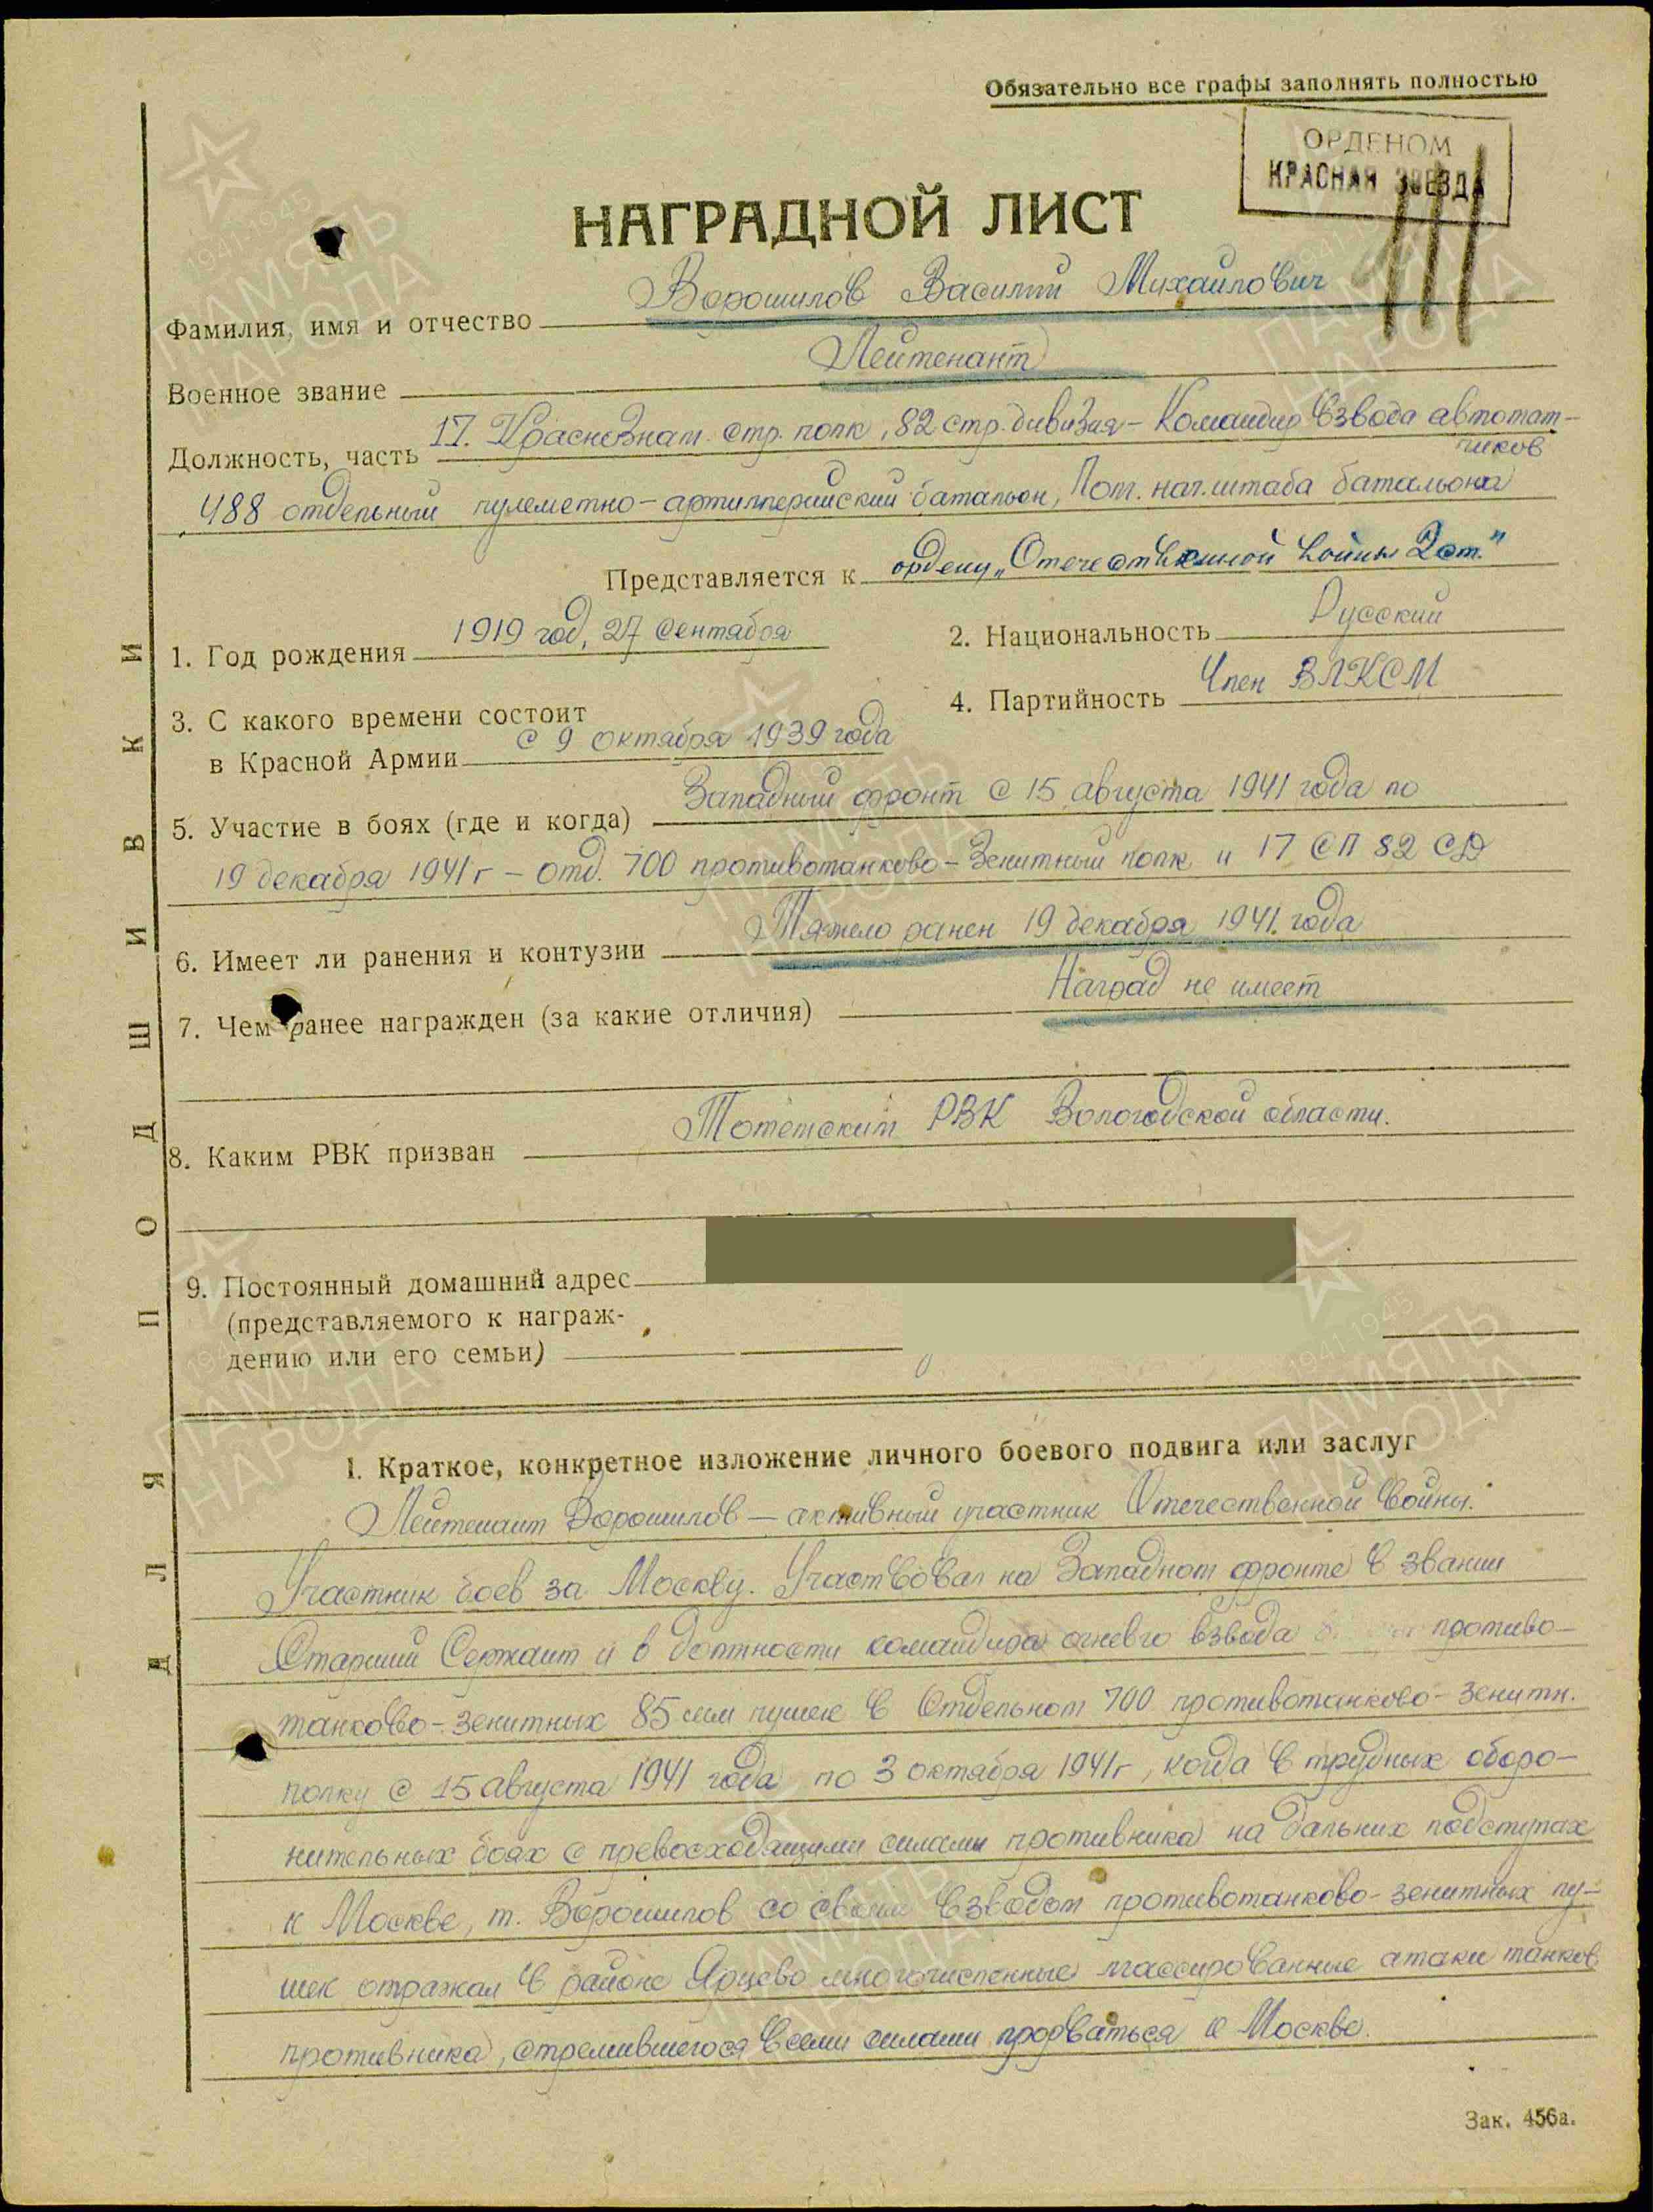 Обязательно все графы заполнять полностью
ОРДЕНОМ
КРАСНАЯ ЗВЕЗДА
НАГРАДНОЙ ЛИСТ
Фамилия, имя и отчество Ворошилов Василий Михайлович
Военное звание Лейтенант
Должность, часть 17. Краснознам. стр. полк, 82 стр. дивизия – Командир взвода автомат-
чиков
488 отдельный пулеметно-артиллерийский батальон, Пом. нач. штаба батальона
Представляется к ордену „Отечественной войны 2 ст."
1. Год рождения 1919 год, 27 сентября
2. Национальность Русский
3. С какого времени состоит
в Красной Армии с 9 октября 1939 года
4. Партийность Член ВЛКСМ
5. Участие в боях (где и когда) Западный фронт с 15 августа 1941 года по
19 декабря 1941 г – отд. 700 противотанково-зенитный полк и 17 СП 82 СД
6. Имеет ли ранения и контузии Тяжело ранен 19 декабря 1941. года
7. Чем ранее награжден (за какие отличия) Наград не имеет
8. Каким РВК призван Тотемским РВК Вологодской области.
9. Постоянный домашний адрес
(представляемого к награж-
дению или его семьи)
1. Краткое, конкретное изложение личного боевого подвига или заслуг
Лейтенант Ворошилов – активный участник Отечественной войны.
Участник боев за Москву. Участвовал на Западном фронте в звании
Старший Сержант и в должности командира огневго взвода противо-
танково-зенитных 85 мм пушек в Отдельном 700 противотанково-зенитн.
полку с 15 августа 1941 года по 3 октября 1941 г, когда в трудных оборо-
нительных боях с превосходящими силами противника на дальних подступах
к Москве, т. Ворошилов со своим взводом противотанково-зенитных пу-
шек отражал в районе Ярцево многочисленные массированные атаки танков
противника, стремившегося всеми силами прорваться к Москве.
Зак. 456а.
ДЛЯ ПОДШИВКИ
ПАМЯТЬ НАРОДА
1941 1945